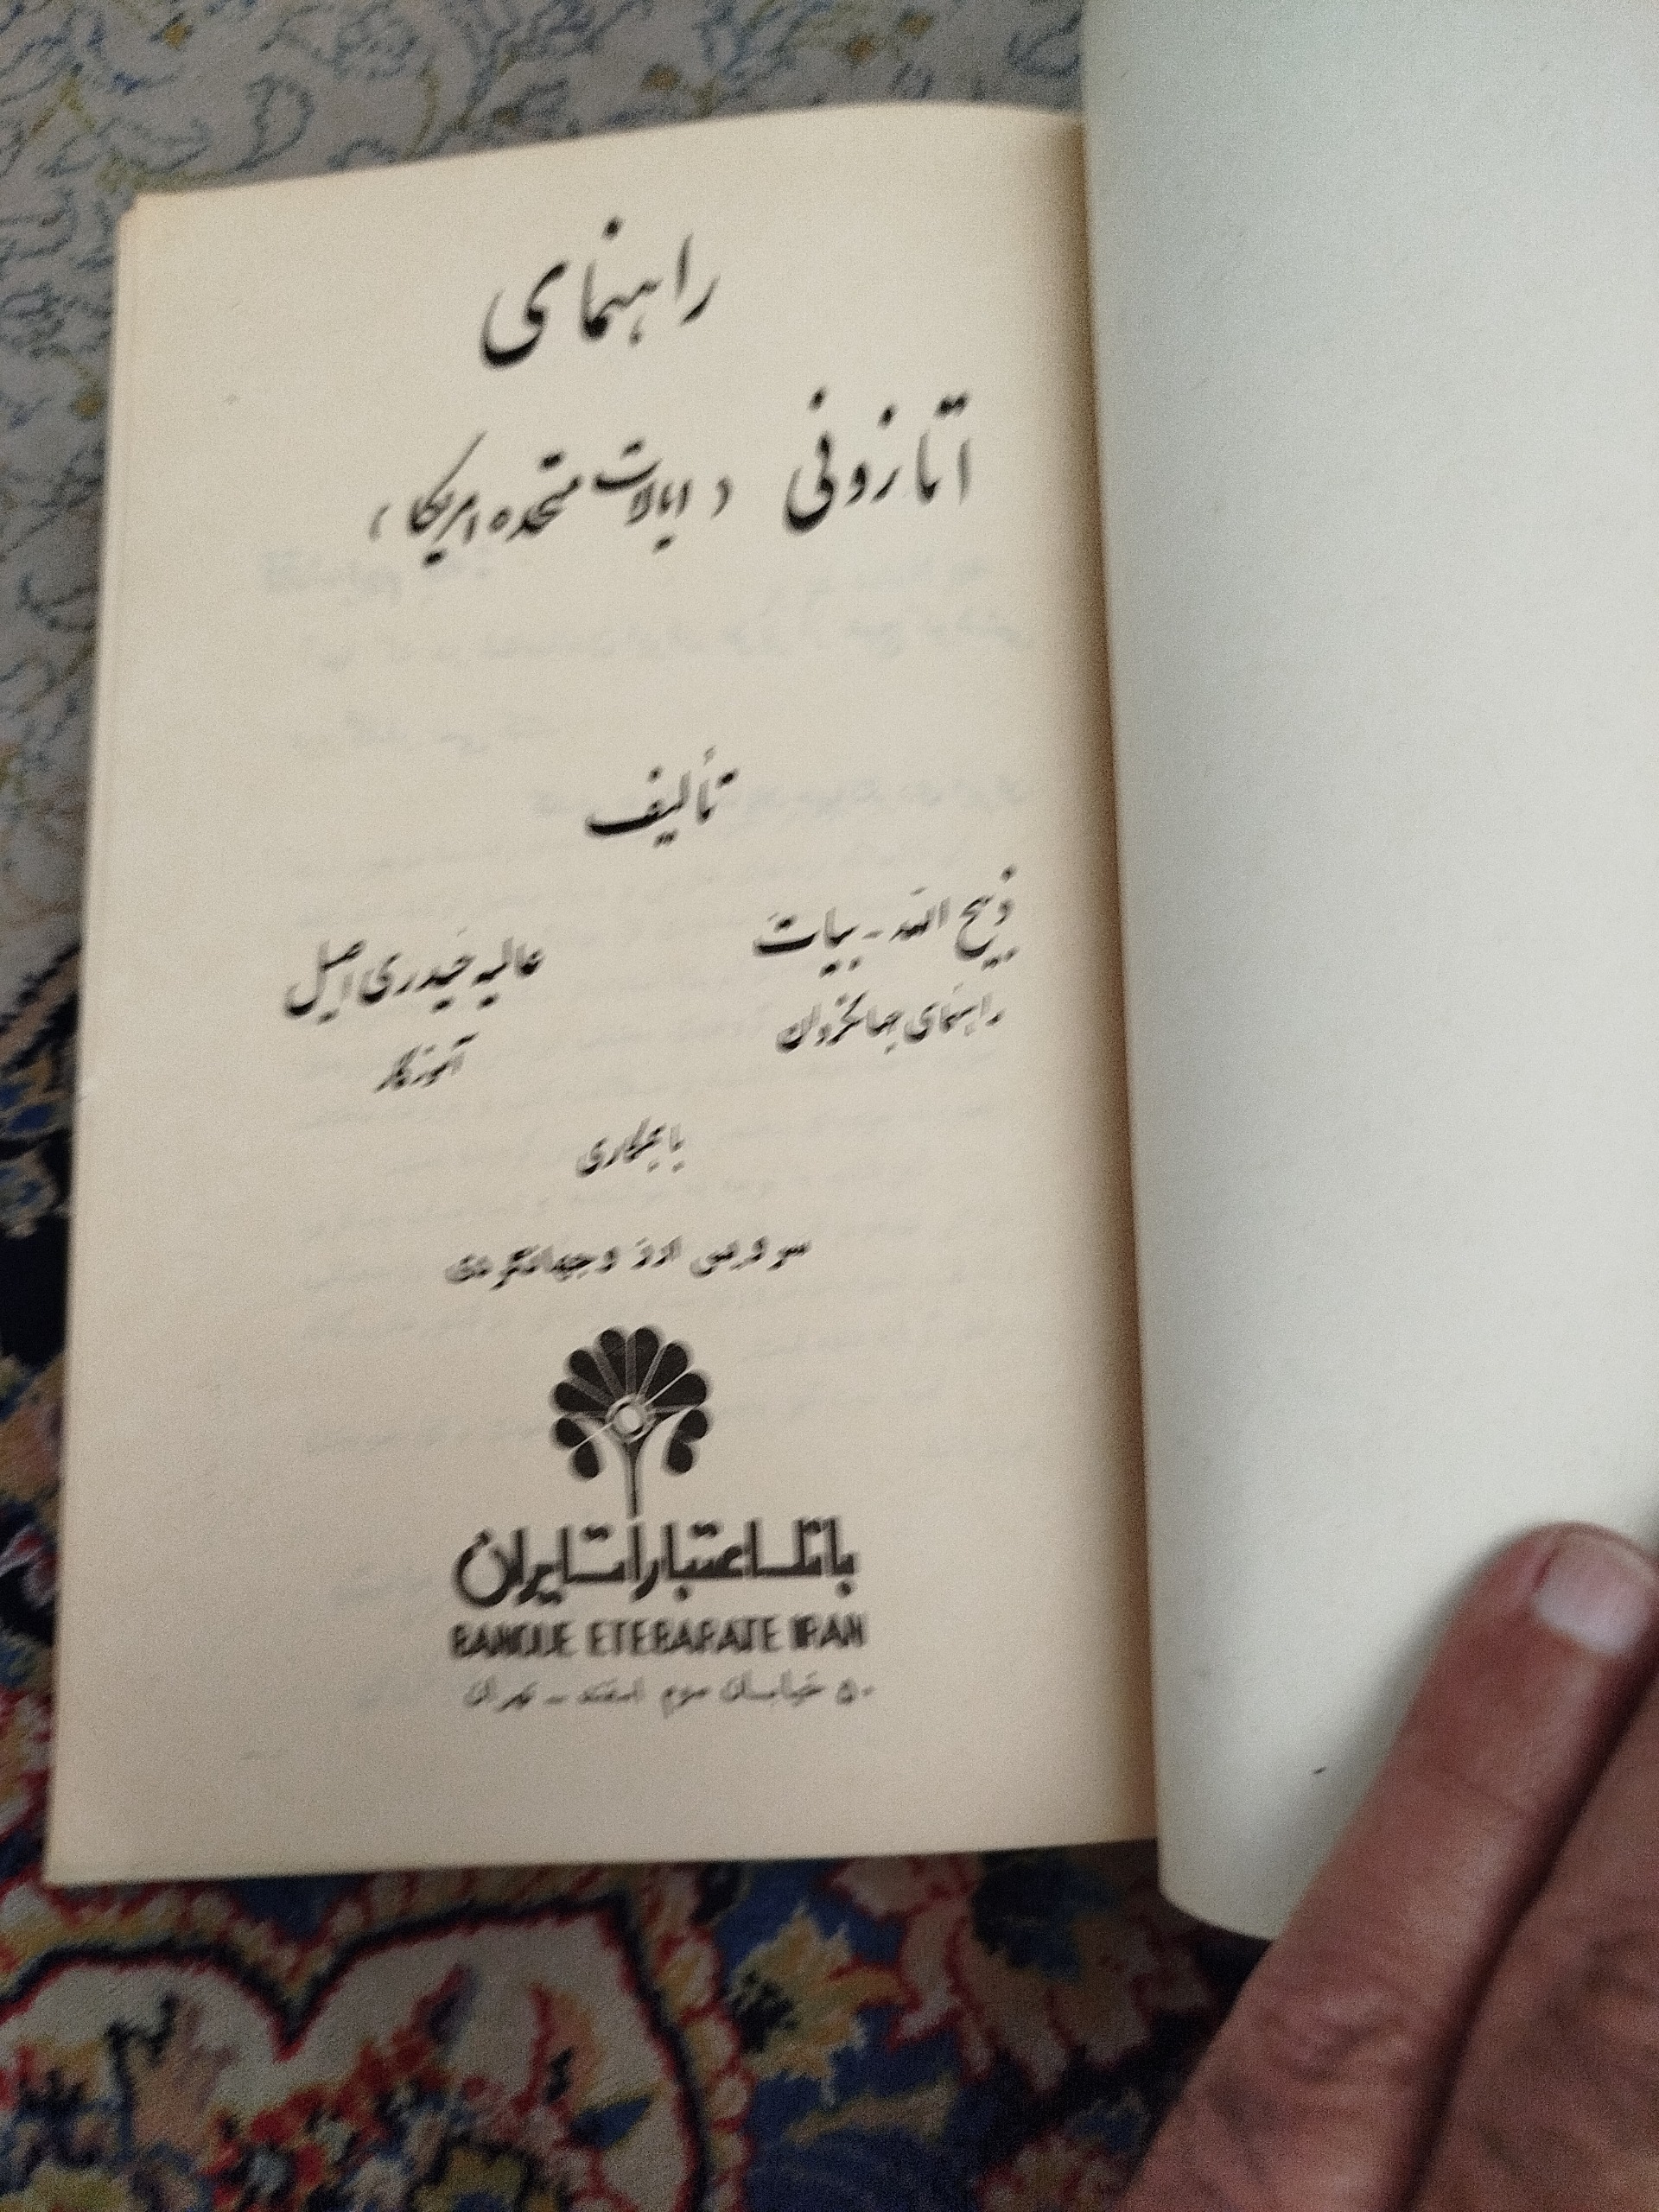 راهنمای
اتازونی (ایالات متحده امریکا)
تألیف
ذبیح الله - بیات
عالیه حیدری اصیل
راهنمای جهانگردان
آموزگار
با همکاری
سرویس ارز و جهانگردی
بانک اعتبارات ایران
BANQUE ETEBARATE IRAN
۵۰ خیابان سوم اسفند - تهران